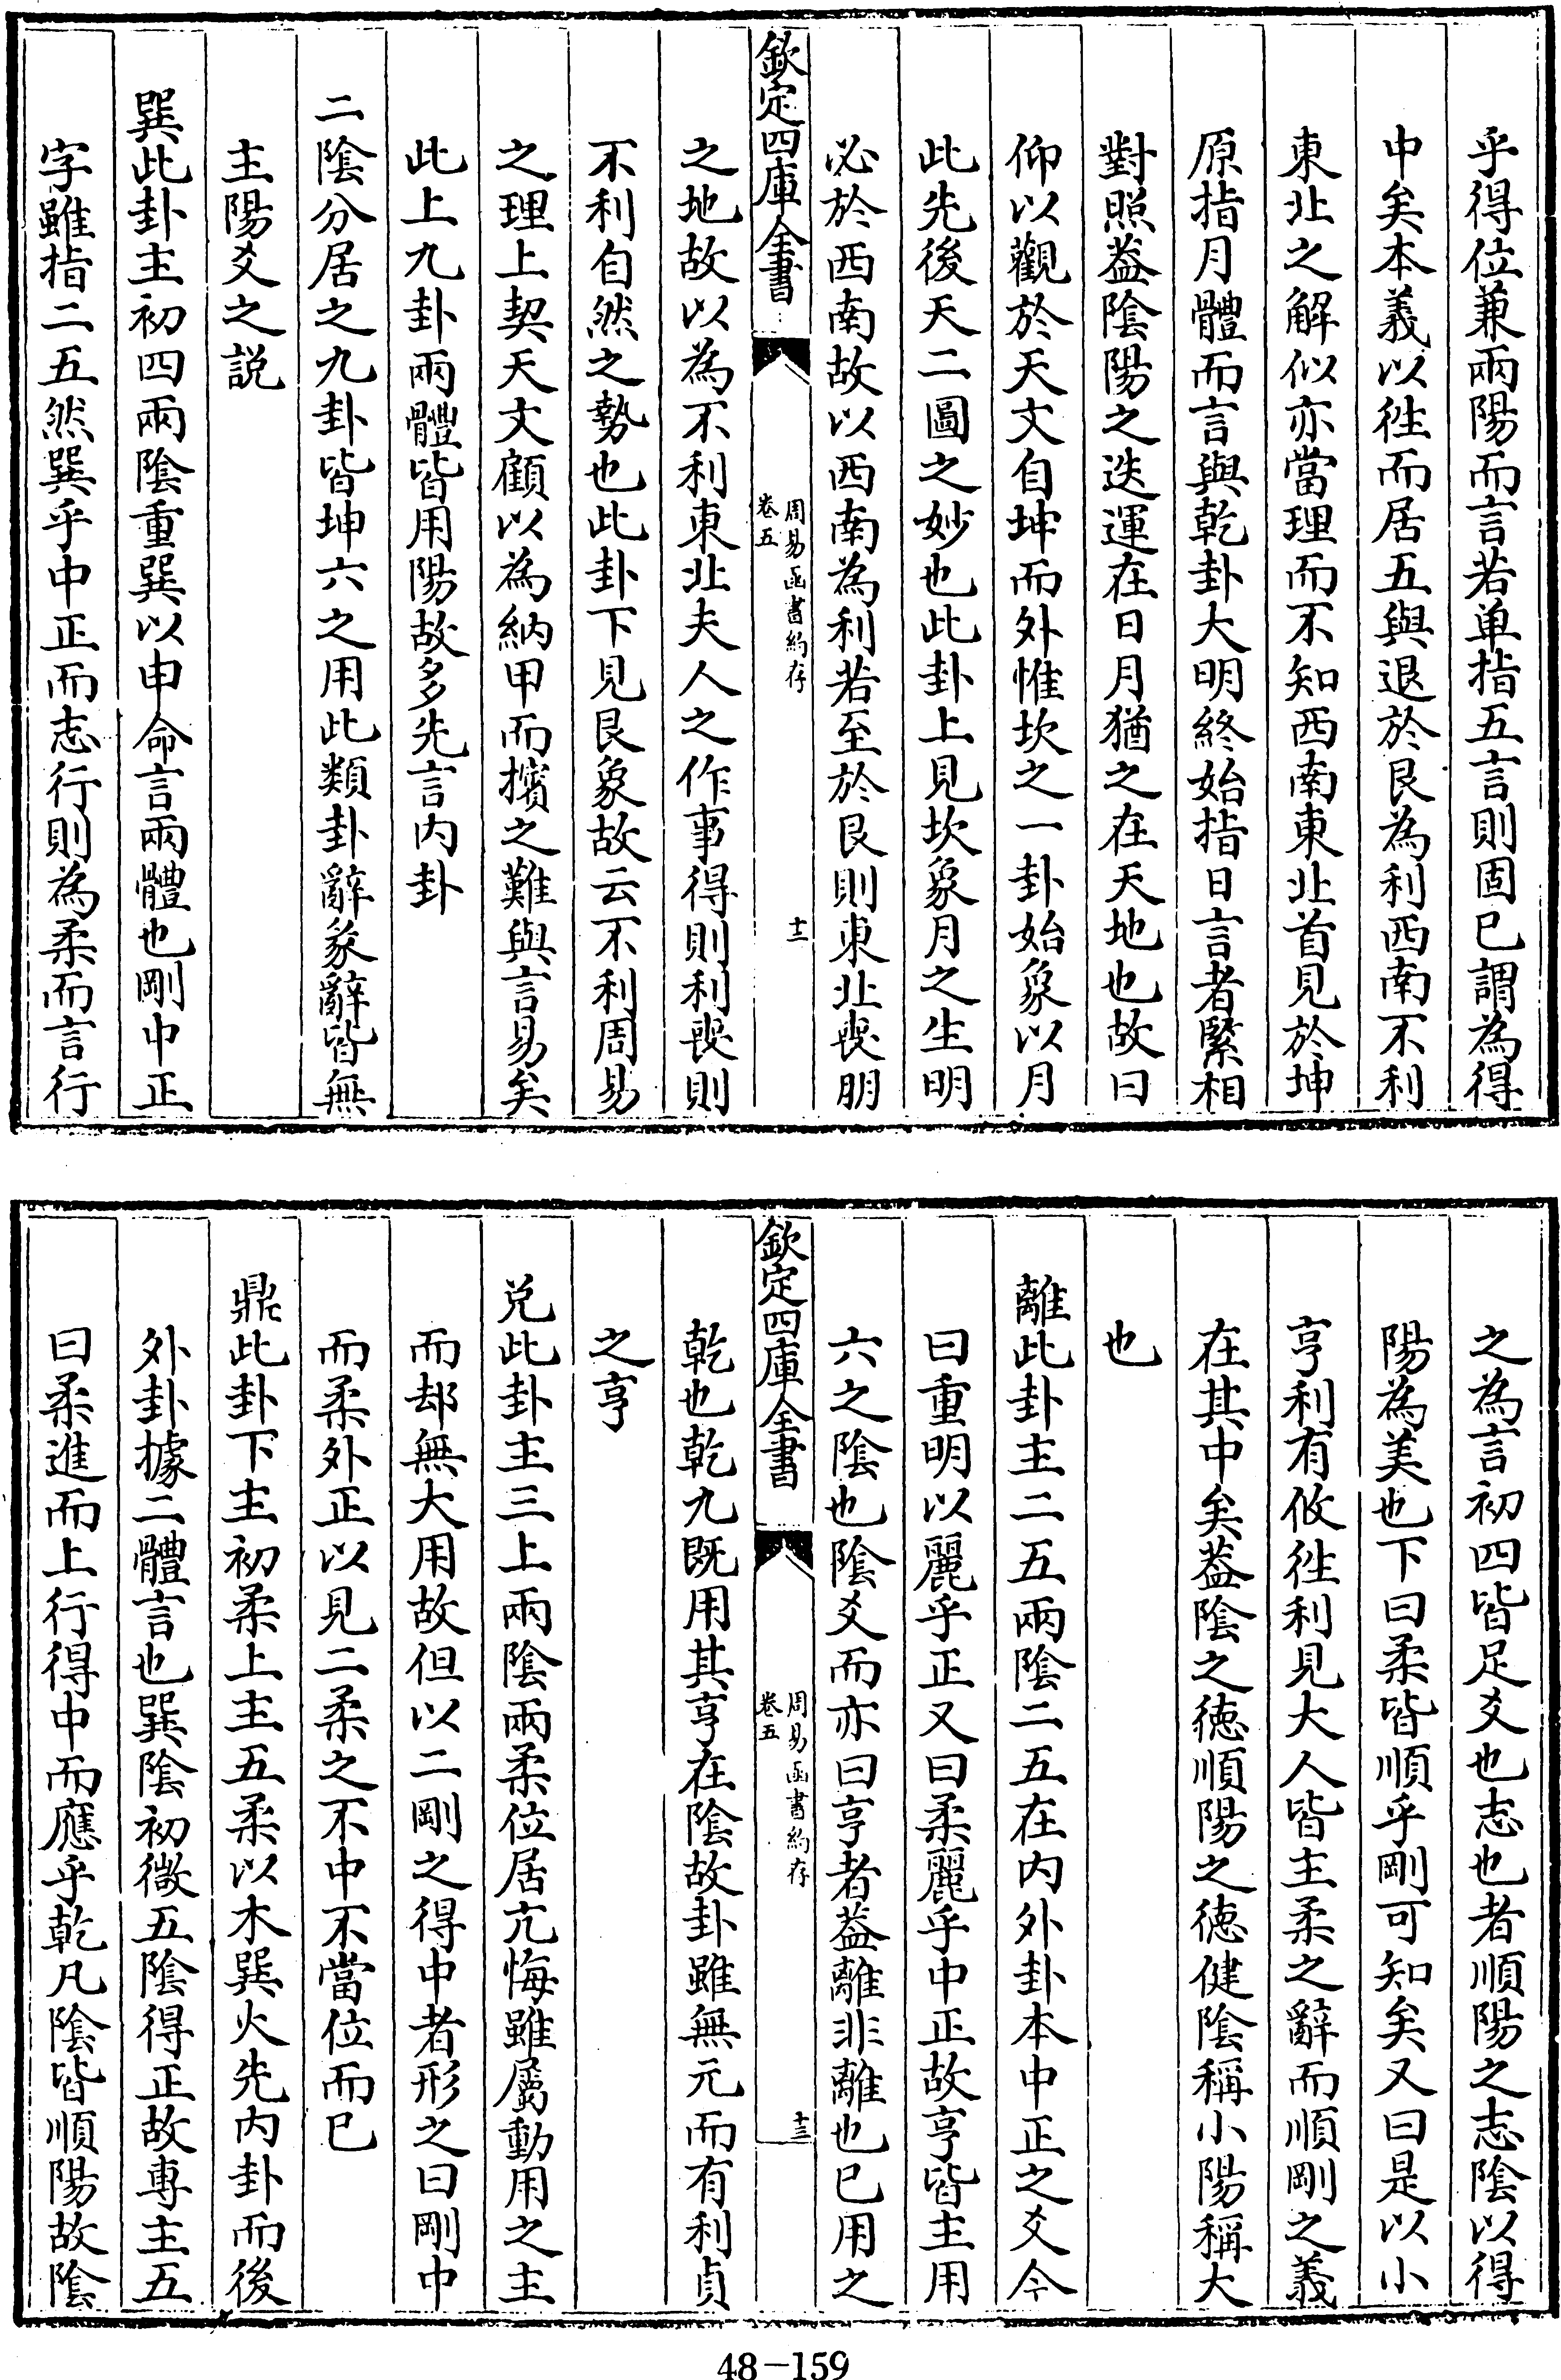 乎得位兼兩陽而言若单指五言則固已謂為得
中矣本義以徃而居五與退於艮為利西南不利
東北之解似亦當理而不知西南東北首見於坤
原指月體而言與乾卦大明終始指日言者緊相
對照葢陰陽之迭運在日月猶之在天地也故曰
仰以觀於天文自坤而外惟坎之一卦始象以月
此先後天二圖之妙也此卦上見坎象月之生明
必於西南故以西南為利若至於艮則東北喪朋
欽定四庫全書
周易函書約存
卷五
十二
之地故以為不利東北夫人之作事得則利喪則
不利自然之勢也此卦下見艮象故云不利周易
之理上契天文顧以為納甲而擯之難與言易矣
此上九卦兩體皆用陽故多先言内卦
二陰分居之九卦皆坤六之用此類卦辭彖辭皆無
主陽爻之説
巽此卦主初四兩陰重巽以申命言兩體也剛中正
字雖指二五然巽乎中正而志行則為柔而言行
之為言初四皆足爻也志也者順陽之志陰以得
陽為美也下曰柔皆順乎剛可知矣又曰是以小
亨利有攸徃利見大人皆主柔之辭而順剛之義
在其中矣葢陰之徳順陽之徳健陰稱小陽稱大
也
離此卦主二五兩陰二五在内外卦本中正之爻今
曰重明以麗乎正又曰柔麗乎中正故亨皆主用
六之陰也陰爻而亦曰亨者葢離非離也已用之
欽定四庫全書
周易函書約存
卷五
十三
乾也乾九既用其亨在陰故卦雖無元而有利貞
之亨
兑此卦主三上兩陰兩柔位居亢悔雖屬動用之主
而却無大用故但以二剛之得中者形之曰剛中
而柔外正以見二柔之不中不當位而已
鼎此卦下主初柔上主五柔以木巽火先内卦而後
外卦據二體言也巽陰初微五陰得正故專主五
曰柔進而上行得中而應乎乾凡陰皆順陽故陰
48-159